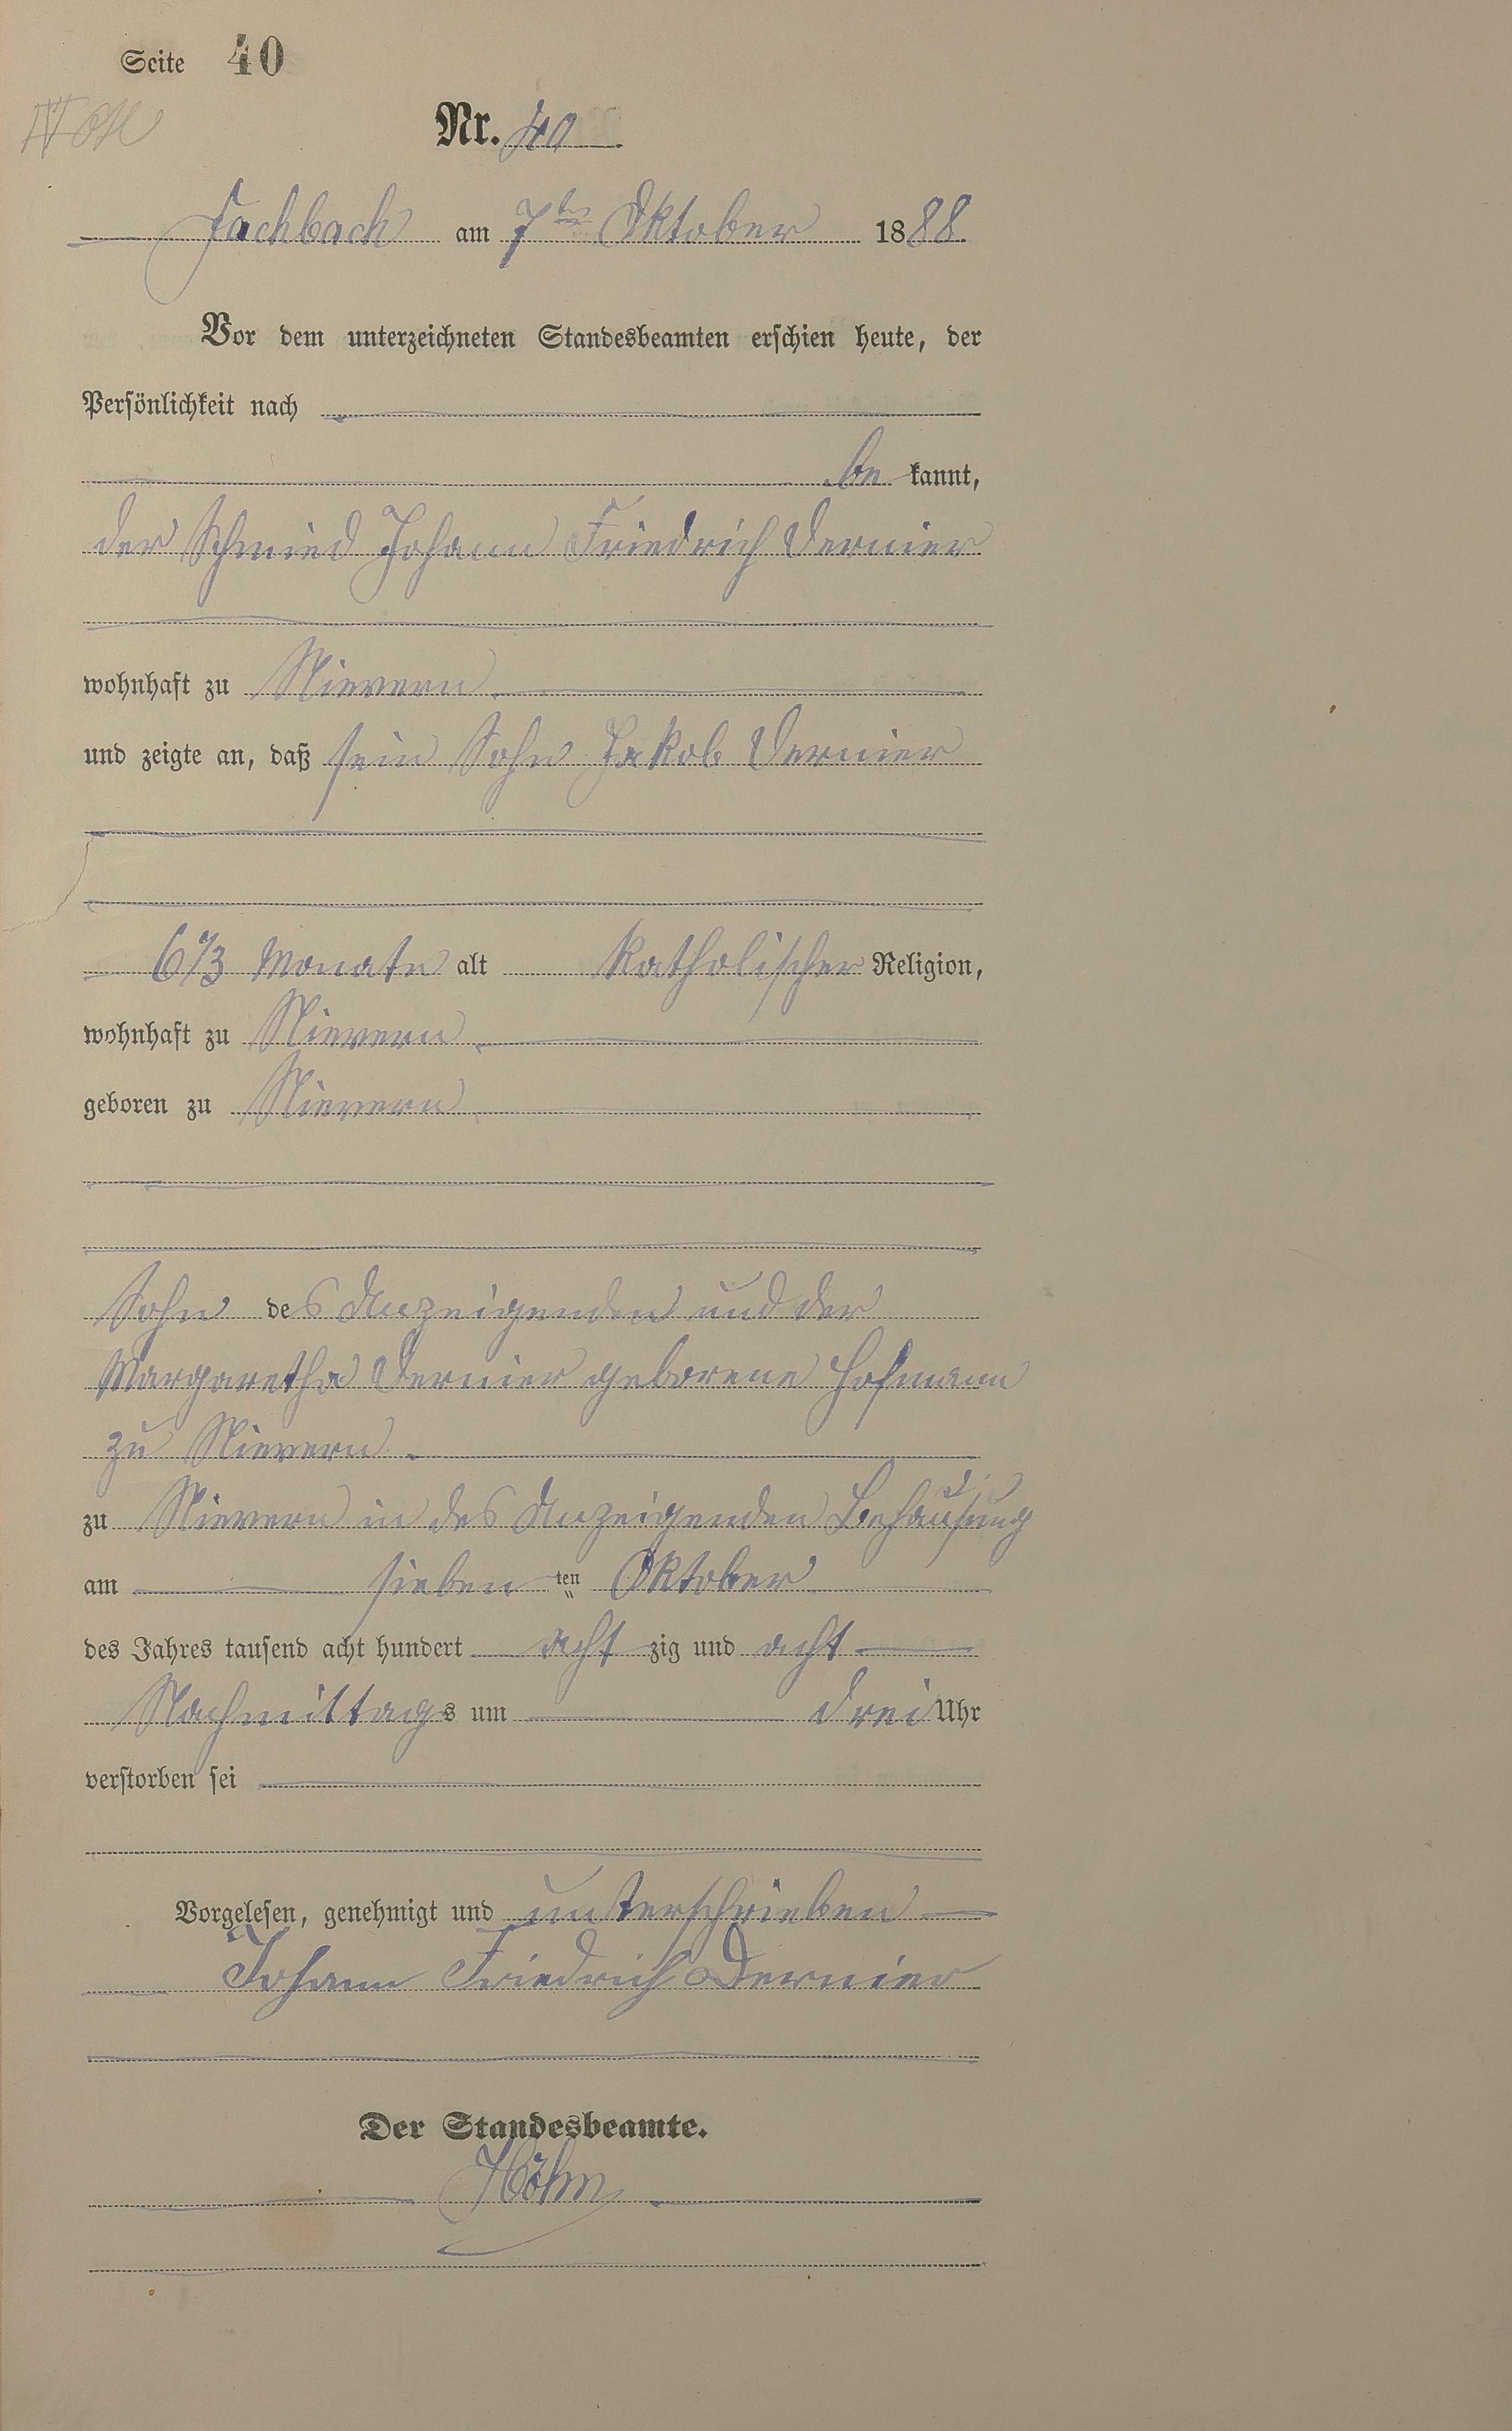 Seite 40
Nr. 40
Fachbach am 7ten Oktober 1888.
Vor dem unterzeichneten Standesbeamten erschien heute, der
Persönlichkeit nach
be kannt,
der Schmied Johann Friedrich Dernier
wohnhaft zu Nievern
und zeigte an, daß sein Sohn Jakob Dernier
6 1/3 Monate alt katholischer Religion,
wohnhaft zu Nievern
geboren zu Nievern
Sohn des Anzeigenden und der
Margaretha Dernier geborene Hofmann
zu Nievern
zu Nievern in des Anzeigenden Behausung
am sieben ten Oktober
des Jahres tausend acht hundert acht zig und acht
Nachmittags um drei Uhr
verstorben sei
Vorgelesen, genehmigt und unterschrieben
Johann Friedrich Dernier
Der Standesbeamte.
Höhn